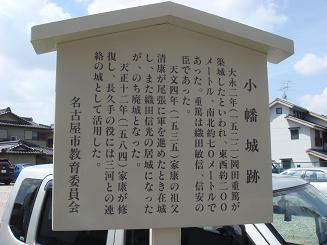 小幡城跡
大永二年（一五二二）岡田重篤が
築城したといわれ、東西約二〇〇
メートル、南北約七〇メートルで
あった。重篤は織田敏信、信安の
臣であった。
天文四年（一五三五）家康の祖父
清康が尾張に軍を進めたとき在城
し、また織田信光の居城になった
が、のち廃城となった。
天正十二年（一五八四）家康が修
復し、長久手の役には三河との連
絡の城として活用した。
名古屋市教育委員会